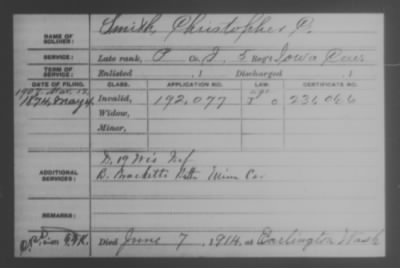 NAME OF SOLDIER: Smith, Christopher C.
SERVICE: Late rank, P Co. I, 5 Reg't Iowa Cav
TERM OF SERVICE: Enlisted , 1 Discharged , 1
DATE OF FILING. CLASS. APPLICATION NO. LAW. CERTIFICATE NO.
1874, May 4 Invalid, 192,077
Widow,
Minor,
ADDITIONAL SERVICES: D, 19 Wis Inf
B. Bracketts Btn Minn Ca.
REMARKS:
Died June 7, 1914, at Earlington Wash